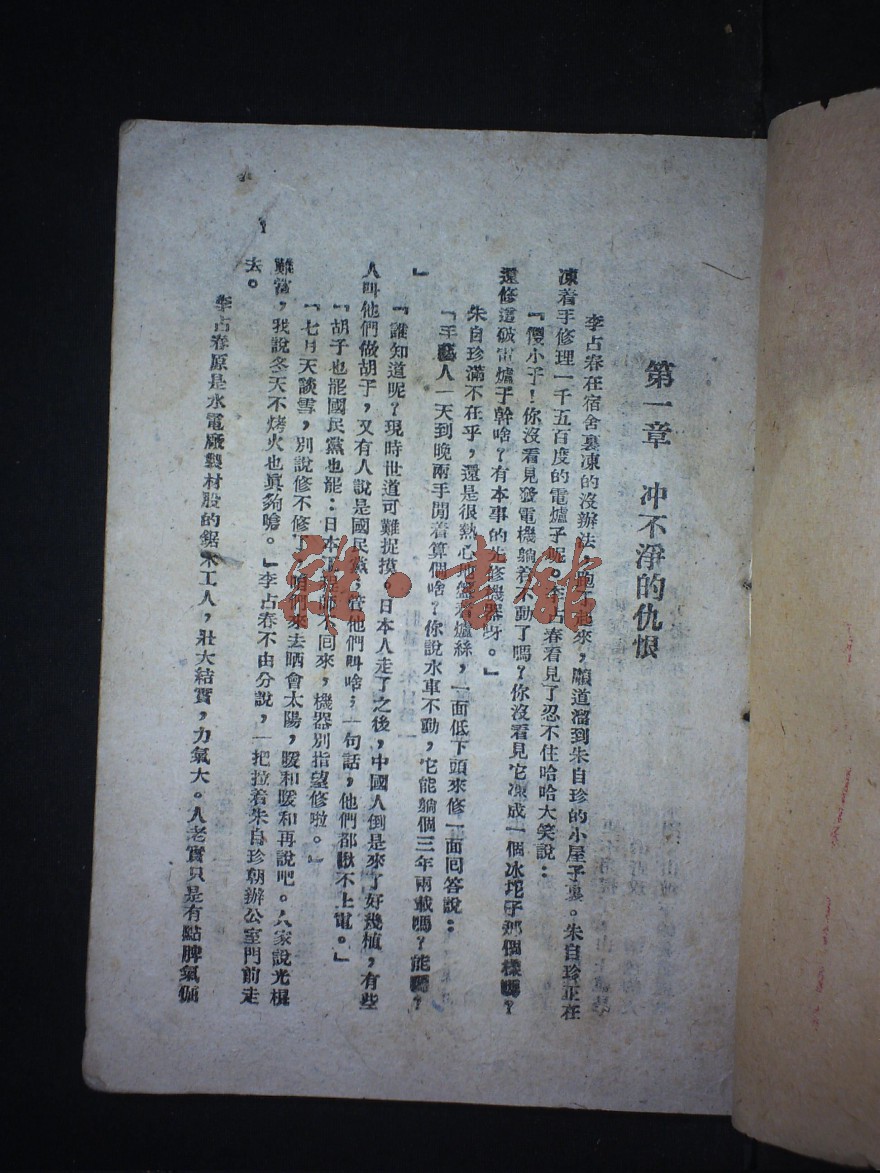 第一章 冲不淨的仇恨
李占春在宿舍裏凍的沒辦法,跑了起來,順道溜到朱自珍的小屋子裏。朱自珍正在
凍着手修理一千五百度的電爐子呢。李占春看見了忍不住哈哈大笑說:
『傻小子!你沒看見發電機躺着不動了嗎?你沒看見它凍成一個冰坨子那個樣嗎?
還修這破電爐子幹啥?有本事的先修機器呀。』
朱自珍滿不在乎,還是很熱心地盤着爐絲,一面低下頭來修一面回答說:
『手藝人一天到晚兩手閒着算個啥?你說水車不動,它能躺個三年兩載嗎?能嗎?
』
『誰知道呢?現時世道可難捉摸。日本人走了之後,中國人倒是來了好幾植,有些
人叫他們做胡子,又有人說是國民黨;管他們叫啥;一句話,他們都瞅不上電。』
『胡子也罷國民黨也罷:日本工程師不回來,機器別指望修啦。』
『七月天談雪,別說修不修了,咱們來去晒會太陽,暖和暖和再說吧。人家說光棍
難當,我說冬天不烤火也眞夠嗆。』李占春不由分說,一把拉着朱自珍朝辦公室門前走
去。
李占春原是水電廠製材股的鋸木工人,壯大結實,力氣大。人老實只是有點脾氣倔
雜·書館